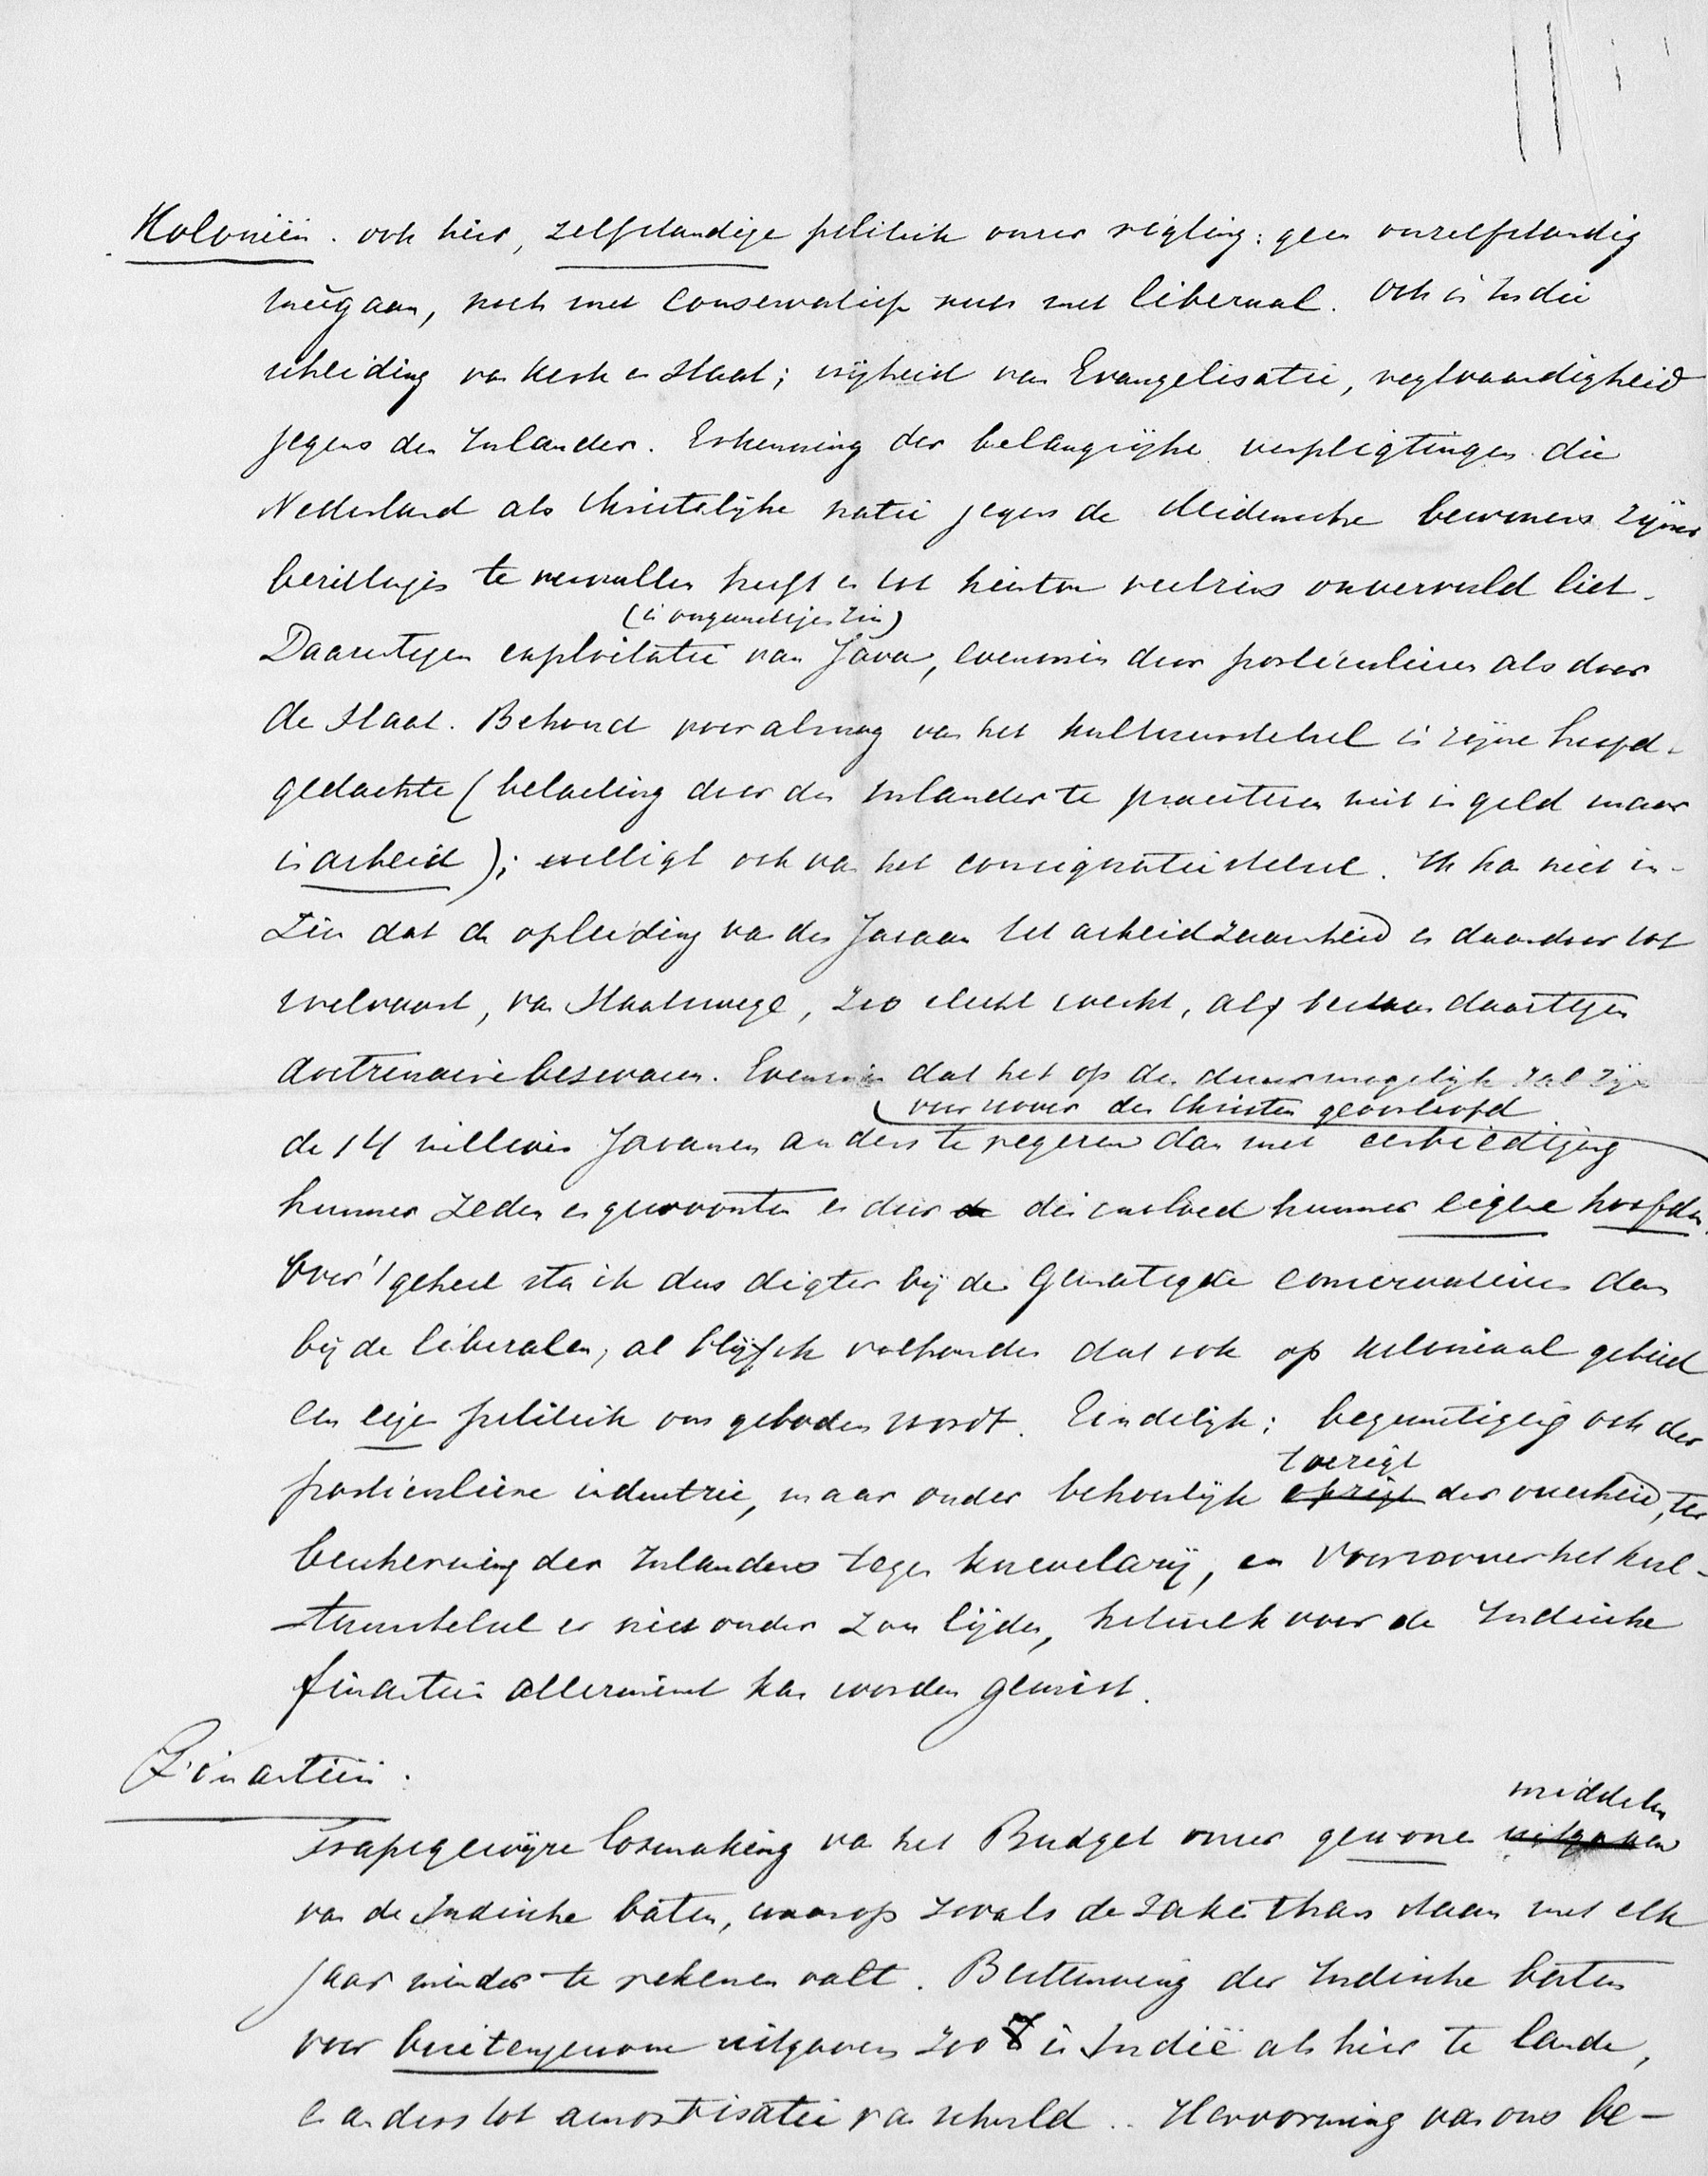 Koloniën. ook hier, zelfstandige politiek onzer rigting: geen onzelfstandig
meêgaan, noch met conservatief noch met liberaal. Ook in Indie
scheiding van Kerk en Staat; vrijheid van Evangelisatie, regtvaardigheid
jegens den Inlander. Erkenning der belangrijke verpligtingen die
Nederland als Christelijke natie jegens de Heidensche bewoners zijner
bezittingen te vervullen heeft en tot hiertoe veelzins onvervuld liet.
(in ongunstigen zin)
Daarentegen exploitatie van Java, evenmin door particulieren als door
de Staat. Behoud vooralsnog van het kultuurstelsel in zijne hoofd-
gedachte (belasting door den Inlander te praesteren niet in geld maar
in arbeid); welligt ook van het consignatiestelsel. Ik kan niet in-
zien dat de opleiding van den Javaan tot arbeidzaamheid en daardoor tot
welvaart, van Staatswege, zoo slecht werkt, als beweren daartegen
doctrinaire bezwaren. Evenmin dat het op den duur mogelijk zal zijn
voor zoover den Christen geoorloofd
de 14 millioen Javanen anders te regeren dan met eerbiediging
hunner zeden en gewoonten en door de den invloed hunner eigene hoofden.
Over 't geheel sta ik dus digter bij de gematigde conservatieven dan
bij de liberalen, al blijf ik volhouden dat ook op koloniaal gebied
een eigen politiek ons geboden wordt. Eindelijk: begunstiging ook der
toezigt
particuliere industrie, maar onder behoorlijk opzigt der overheid, ter
bescherming der Inlanders tegen knevelarij, en voorzoover het kul-
tuurstelsel er niet onder zou lijden, hetwelk voor de Indische
finantien allerminst kan worden gemist.
Finantiën.
middelen
Trapsgewijze losmaking van het Budget onzer gewone uitgaven
van de Indische baten, waarop zooals de zaken thans staan met elk
jaar minder te rekenen valt. Bestemming der Indische baten
voor buitengewone uitgaven zoo in Indië als hier te lande,
en anders tot amortisatie van schuld. Hervorming van ons be-